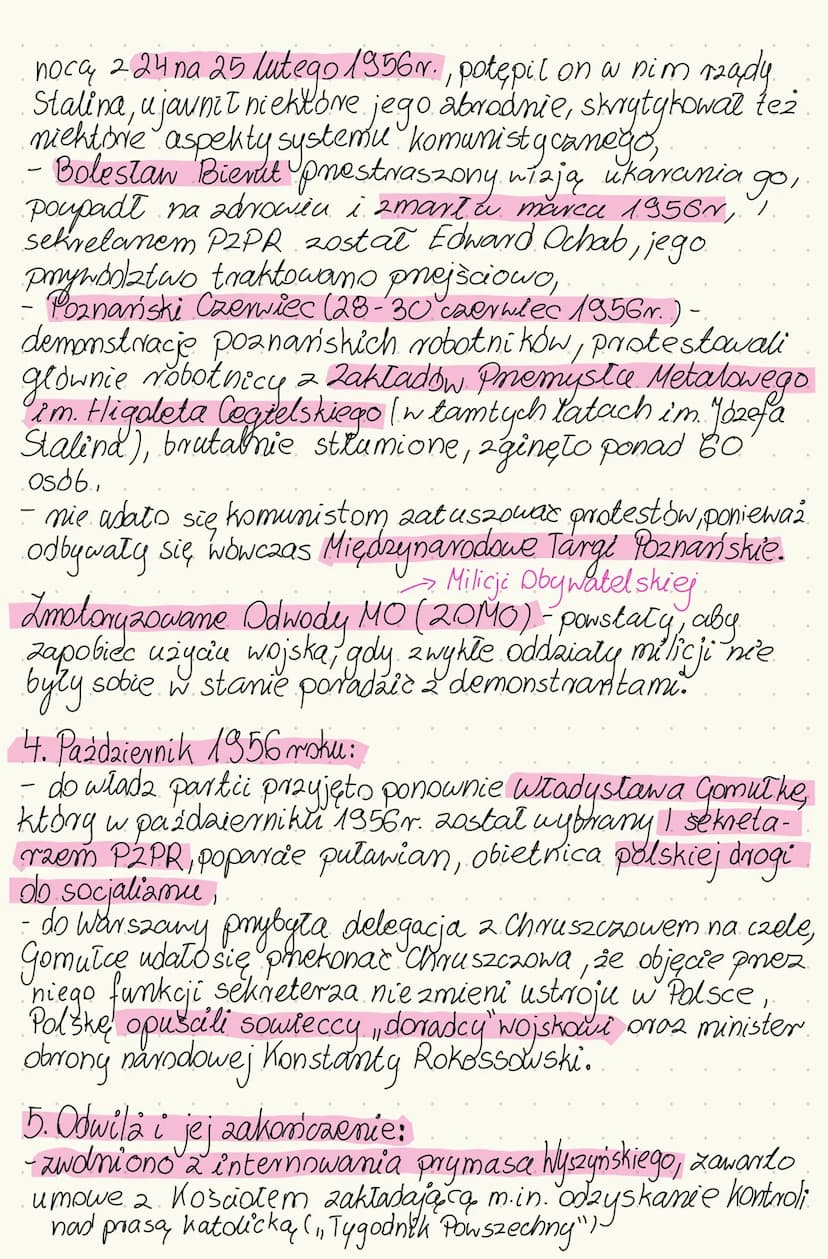 nocą z 24 na 25 lutego 1956r., potępił on w nim rządy
Stalina, ujawnił niektóre jego zbrodnie, skrytykował też
niektóre aspekty systemu komunistycznego,
- Bolesław Bierut przestraszony wizją ukarania go,
poupadł na zdrowiu i zmarł w marcu 1956r,
sekretarzem PZPR został Edward Ochab, jego
przywództwo traktowano przejściowo,
- Poznański Czerwiec (28-30 czerwiec 1956r.) -
demonstracje poznańskich robotników, protestowali
głównie robotnicy z Zakładów Przemysłu Metalowego
im. Higoleta Cegielskiego (w tamtych latach im. Józefa
Stalina), brutalnie stłumione, zginęło ponad 60
osób.
- nie udało się komunistom zatuszować protestów, ponieważ
odbywały się wówczas Międzynarodowe Targi Poznańskie.
→ Milicji Obywatelskiej
Zmotoryzowane Odwody MO (ZOMO) - powstały, aby
zapobiec użyciu wojska, gdy zwykłe oddziały milicji nie
były sobie w stanie poradzić z demonstrantami.
4. Październik 1956 roku:
- do władz partii przyjęto ponownie Władysława Gomułkę,
który w październiku 1956r. został wybrany I sekreta-
rzem PZPR, poparcie puławian, obietnica polskiej drogi
do socjalizmu,
- do Warszawy przybyła delegacja z Chruszczowem na czele,
Gomułce udało się przekonać Chruszczowa, że objęcie przez
niego funkcji sekreterza nie zmieni ustroju w Polsce,
Polskę opuścili sowieccy „doradcy" wojskowi oraz minister
obrony narodowej Konstanty Rokossowski.
5. Odwilż i jej zakończenie:
- zwolniono z internowania prymasa Wyszyńskiego, zawarto
umowe z Kościołem zakładającą m.in. odzyskanie kontroli
nad prasą katolicką („Tygodnik Powszechny")